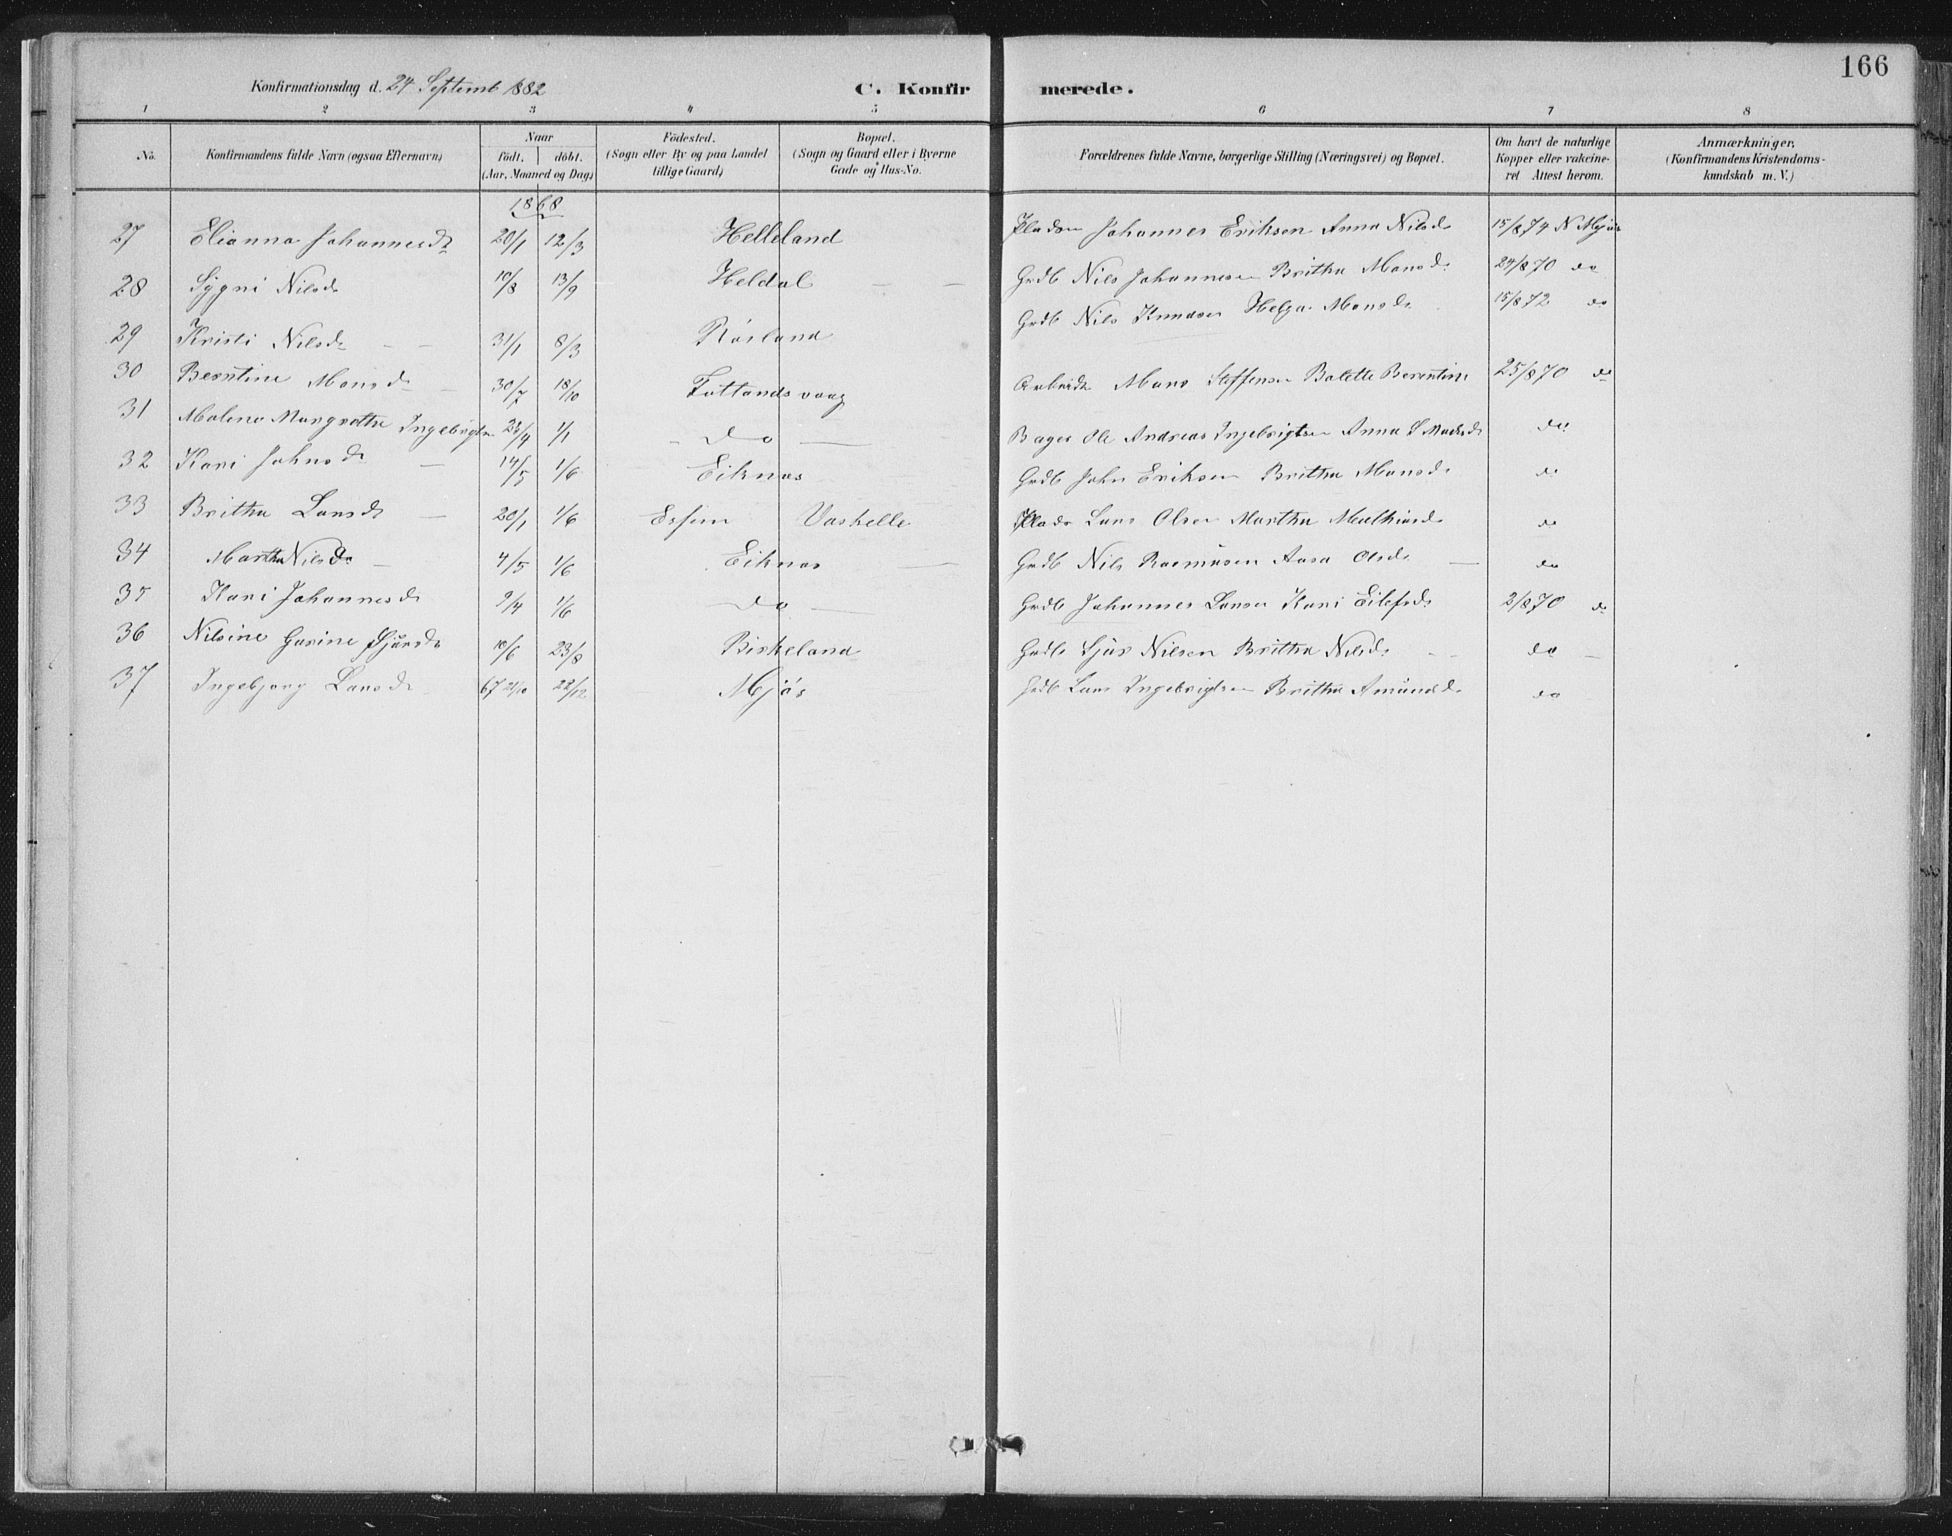 166
Konfirmationsdag d. 24 Septemb 1882 C. Konfirmerede.
1 2 3 4 5 6 7 8
No. Konfirmandens fulde Navn (ogsaa Efternavn) Naar födt. döbt. (Aar, Maaned og Dag) Födested. (Sogn eller By og paa Landet tillige Gaard) Bopæl. (Sogn og Gaard eller i Byerne Gade og Hus-No. Forældrenes fulde Navne, borgerlige Stilling (Næringsvei) og Bopæl. Om havt de naturlige Kopper eller vakcineret Attest herom. Anmærkninger, (Konfirmandens Kristendomskundskab m. V.)
1868
27 Elianna Johannesdr 20/1 12/3 Helleland Pladsm Johannes Eriksen Anna Nilsdr 15/8 74 N Mjös
28 Sygni Nilsdr 10/8 13/9 Heldal — — Grdb Nils Johannesen Britha Monsdr 24/8 70 do
29 Kristi Nilsdr — — 31/1 8/3 Rösland Grdb Nils Knudsen Helga Monsdr 15/8 72 do
30 Berntine Monsdr — 30/7 18/10 Tottandsvaag Arbeidr Mons Steffensen Bolette Berentine 25/8 70 do
31 Malene Margrethe Ingebrigtsen 23/4 1/1 — do — Bager Ole Andreas Ingebrigtsen Anna S Madsdr do
32 Kari Johnsdr — 14/5 1/6 Eiknes Grdb John Eriksen Britha Monsdr do
33 Britha Larsdr — 20/1 1/6 Vashelle Plads Lars Olsen Martha Mathiasdr do
34 Martha Nilsdr — 4/5 1/6 Eiknes — Grdb Nils Rasmusen Aasa Olsdr — do
35 Kari Johannesdr 9/4 1/6 — do — Grdb Johannes Larsen Kari Eilefsdr 2/8 70 do
36 Nilsine Gurine Sjursdr 10/6 23/8 Birkeland Grdb Sjur Nilsen Britha Nilsdr — — do —
37 Ingebjorg Larsdr 67 21/10 22/12 Mjös Grdb Lars Ingebrigtsen Britha Amundsdr do